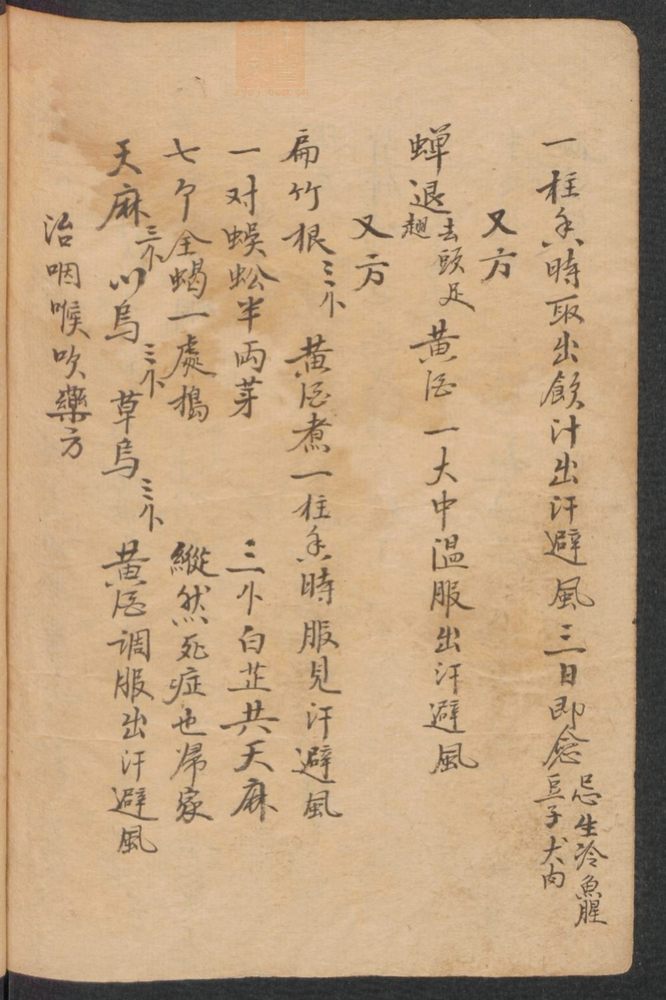 一柱香時取出飲汁出汗避風三日即愈忌生冷魚腥豆子犬肉
又方
蟬退去頭足翅 黄酒一大中温服出汗避風
又方
扁竹根三个 黄酒煮一柱香時服見汗避風
一对蜈蚣半両芽 三个白芷共天麻
七个全蝎一處搗 縱然死症也帰家
天麻三个 川烏三个 草烏三个 黄酒调服出汗避风
治咽喉吹藥方